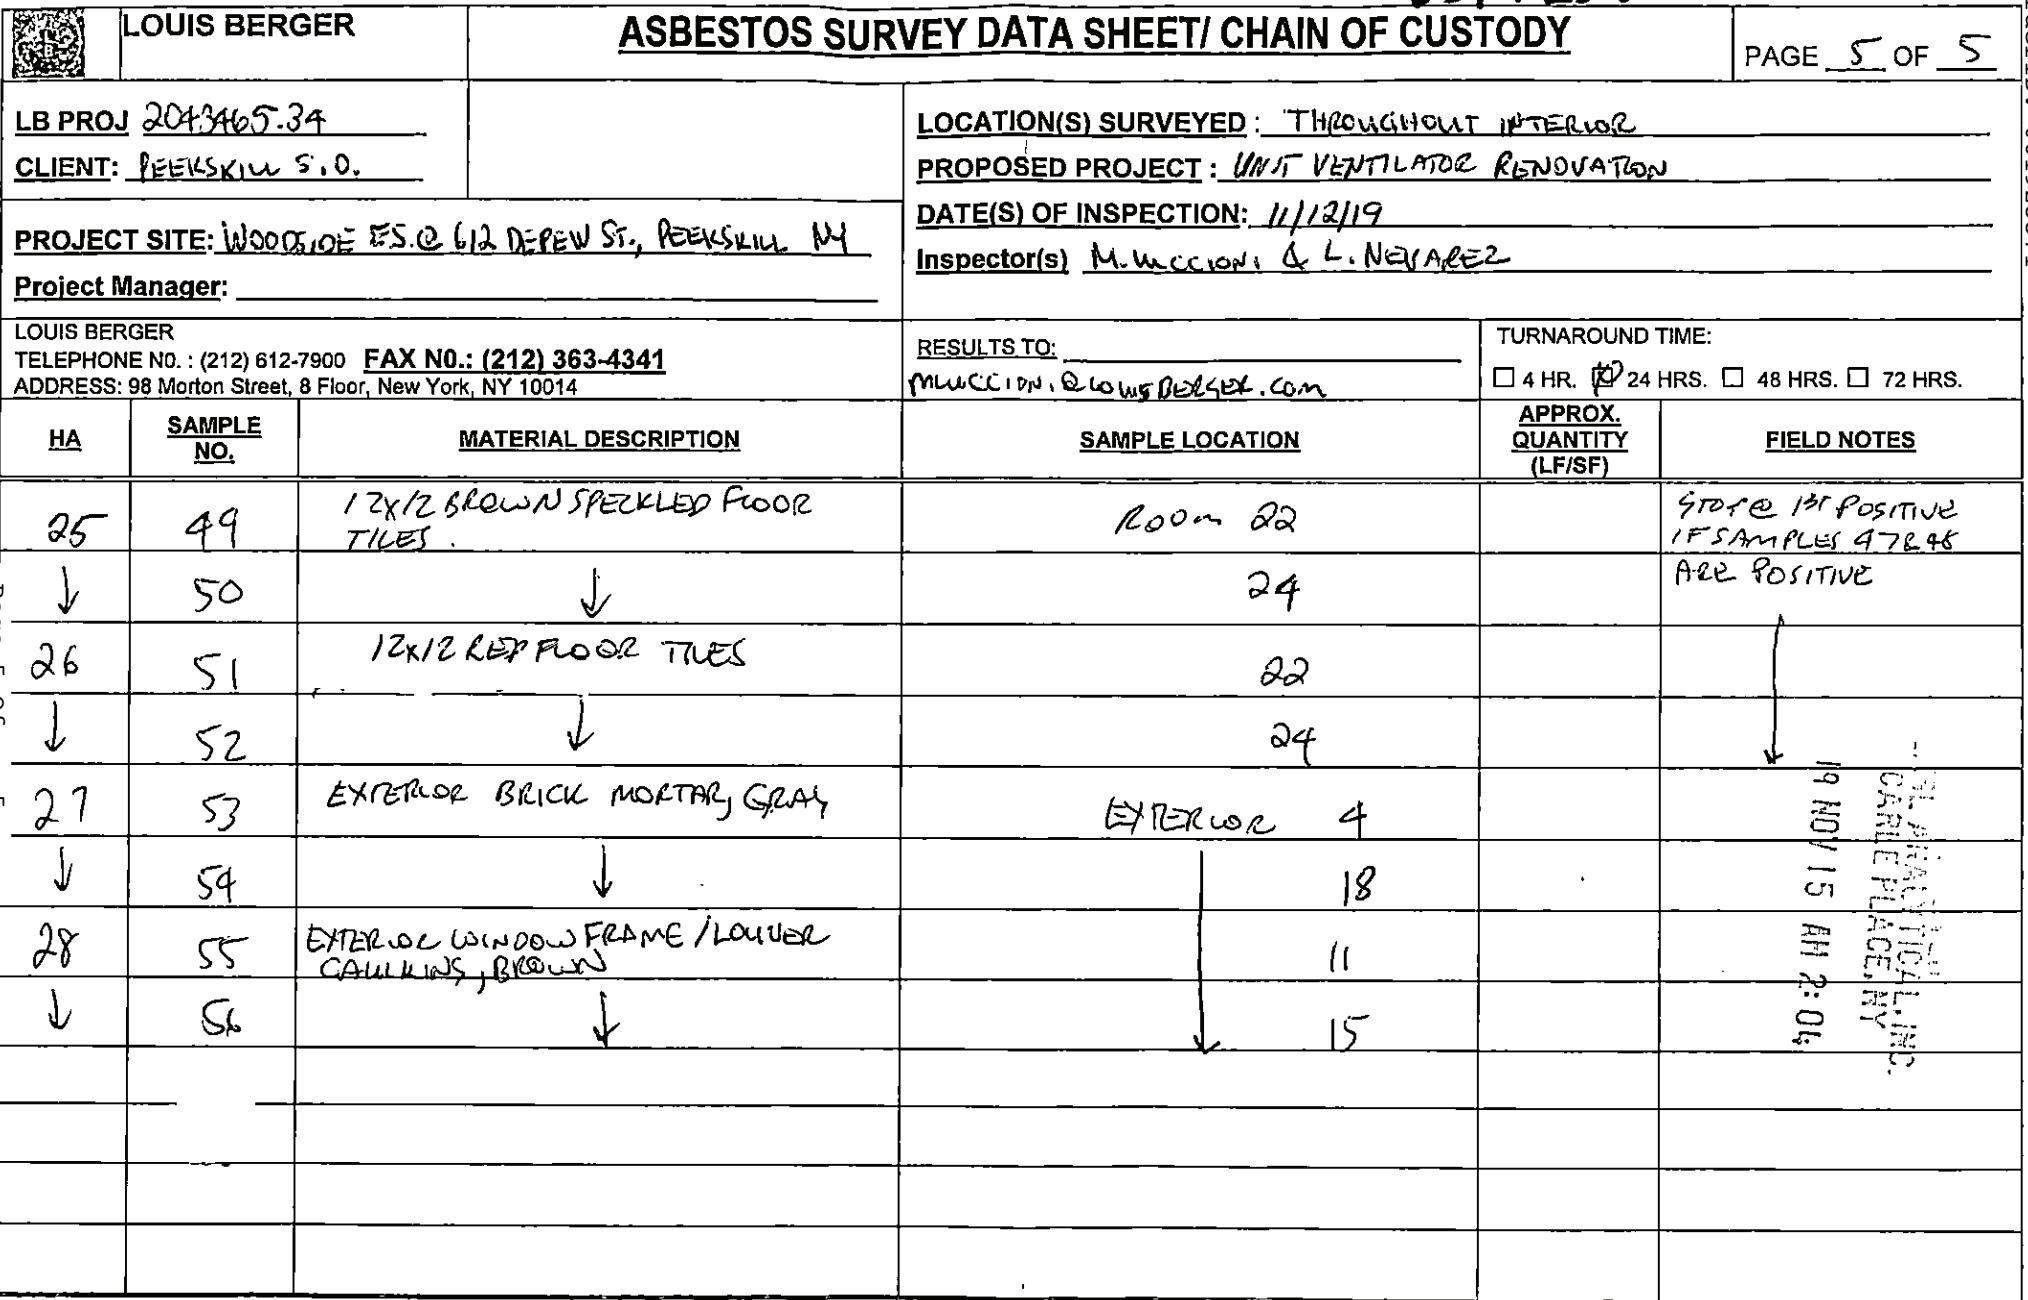 LOUIS BERGER
ASBESTOS SURVEY DATA SHEET/ CHAIN OF CUSTODY
PAGE 5 OF 5
LB PROJ 2043465.34
CLIENT: PEEKSKILL S.D.
PROJECT SITE: WOODSIDE ES.@ 612 DEPEW ST., PEEKSKILL NY
Project Manager:
LOCATION(S) SURVEYED : THROUGHOUT INTERIOR
PROPOSED PROJECT : UNIT VENTILATOR RENOVATION
DATE(S) OF INSPECTION: 11/12/19
Inspector(s) M. & L. NEVAREZ
LOUIS BERGER
TELEPHONE N0. : (212) 612-7900 FAX N0.: (212) 363-4341
ADDRESS: 98 Morton Street, 8 Floor, New York, NY 10014
RESULTS TO:
@LOUISBERGER.COM
TURNAROUND TIME:
☐ 4 HR. ☒ 24 HRS. ☐ 48 HRS. ☐ 72 HRS.
HA SAMPLE NO. MATERIAL DESCRIPTION SAMPLE LOCATION APPROX. QUANTITY (LF/SF) FIELD NOTES
25 49 12X12 BROWN SPECKLED FLOOR TILES. ROOM 22 STOP @ 1ST POSITIVE IF SAMPLES 47 & 48
↓ 50 ↓ 24 ARE POSITIVE
26 51 12x12 RED FLOOR TILES 22
↓ 52 ↓ 24
27 53 EXTERIOR BRICK MORTAR, GRAY EXTERIOR 4
↓ 54 ↓ 18
28 55 EXTERIOR WINDOW FRAME/LOUVER CAULKING, BROWN 11
↓ 56 ↓ 15
ANALYTICAL, INC.
CARLE PLACE, NY
19 NOV 15 AM 2:04